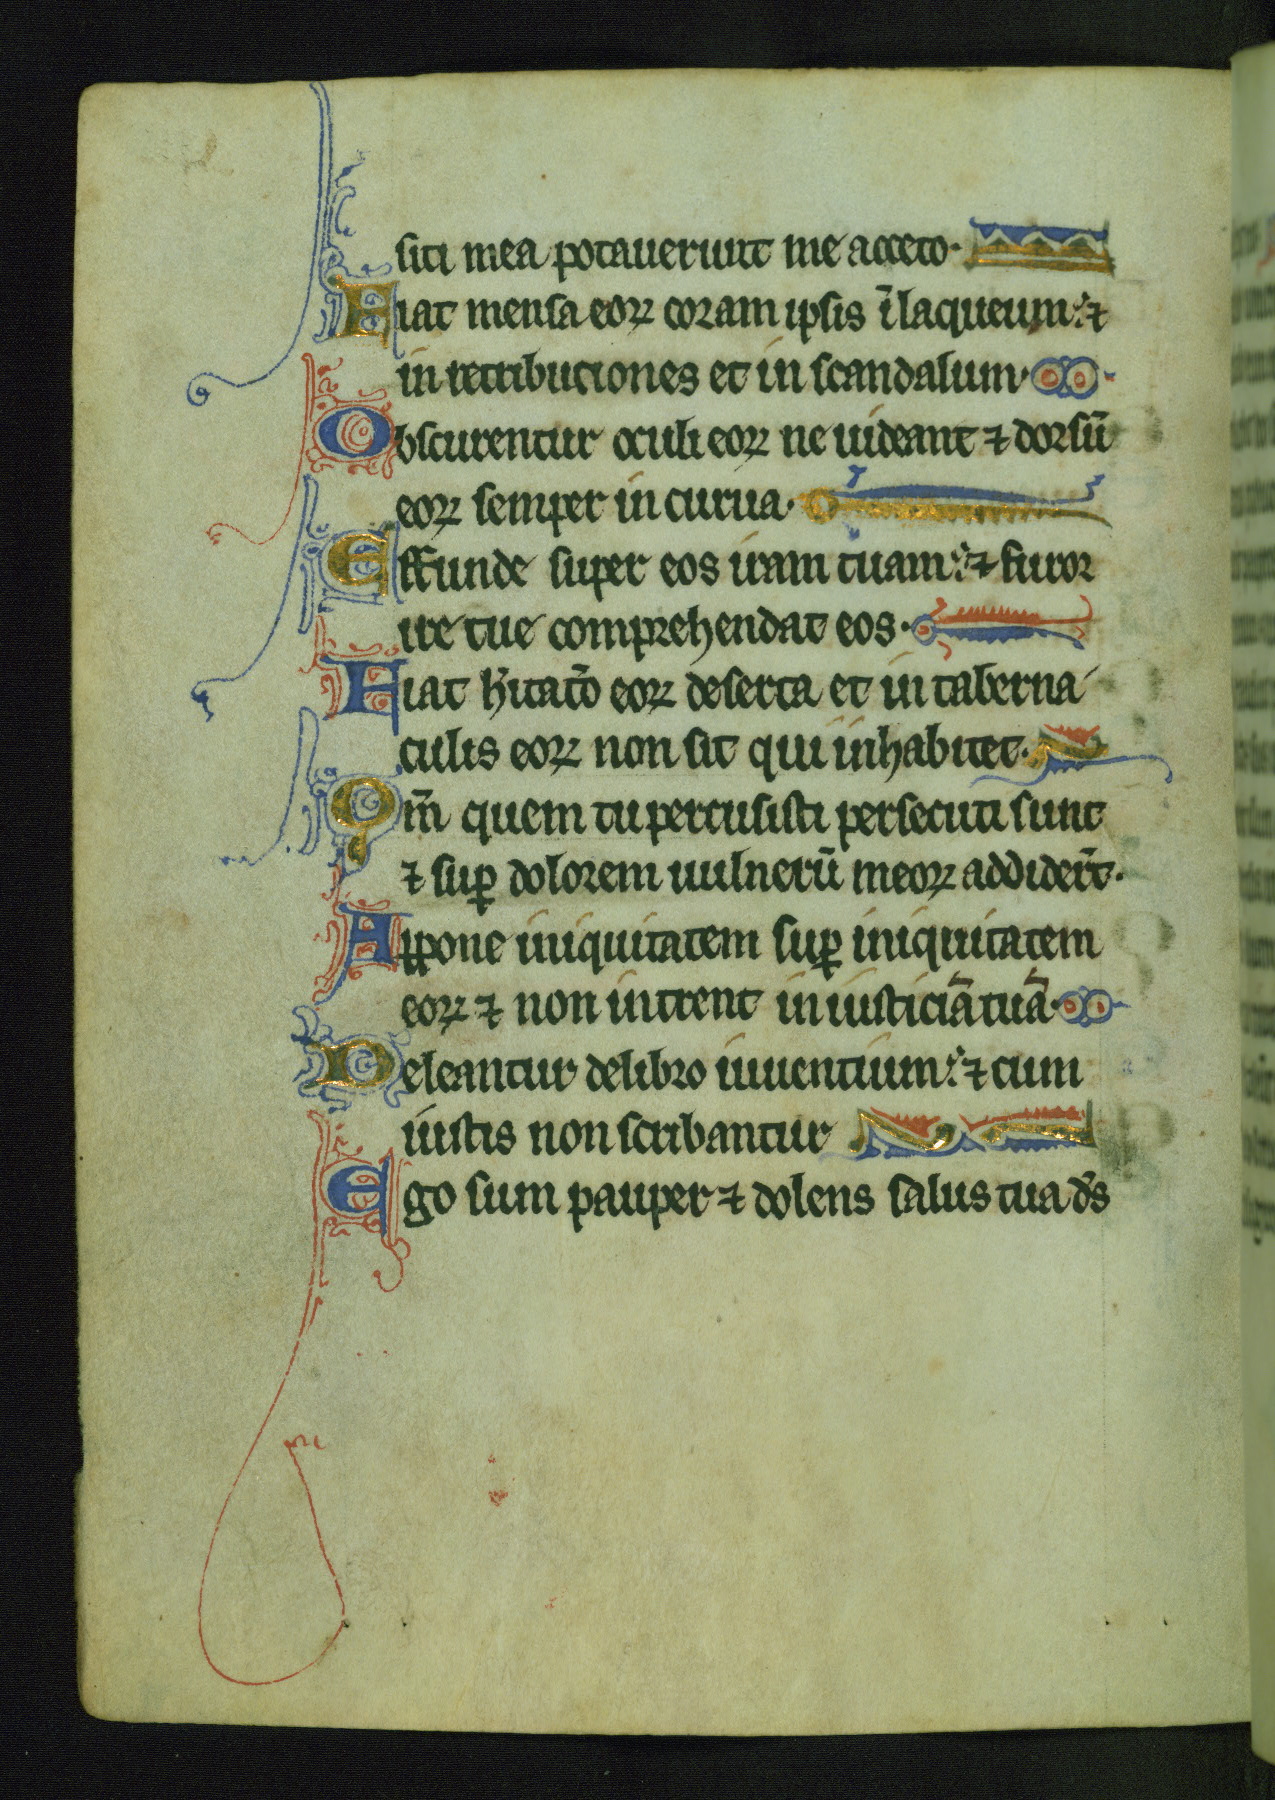 siti mea potauerunt me acceto·
Fiat mensa eoꝝ coram ipsis ĩ laqueum: ⁊
in retribuciones et in scandalum·
Obscurentur oculi eoꝝ ne uideant ⁊ dorsũ
eoꝝ semper in curua·
Effunde super eos iram tuam: ⁊ furor
ire tue comprehendat eos·
Fiat h̄itat̄o eoꝝ deserta et in taberna
culis eoꝝ non sit qui inhabitet·
Qm̄ quem tu percusisti persecuti sunt
⁊ suꝑ dolorem uulnerũ meoꝝ addider̄t·
Appone iniquitatem suꝑ iniquitatem
eoꝝ ⁊ non intrent in iusticiã tuã·
Deleantur de libro uiuentium: ⁊ cum
iustis non scribantur
Ego sum pauper ⁊ dolens salus tua d̄s